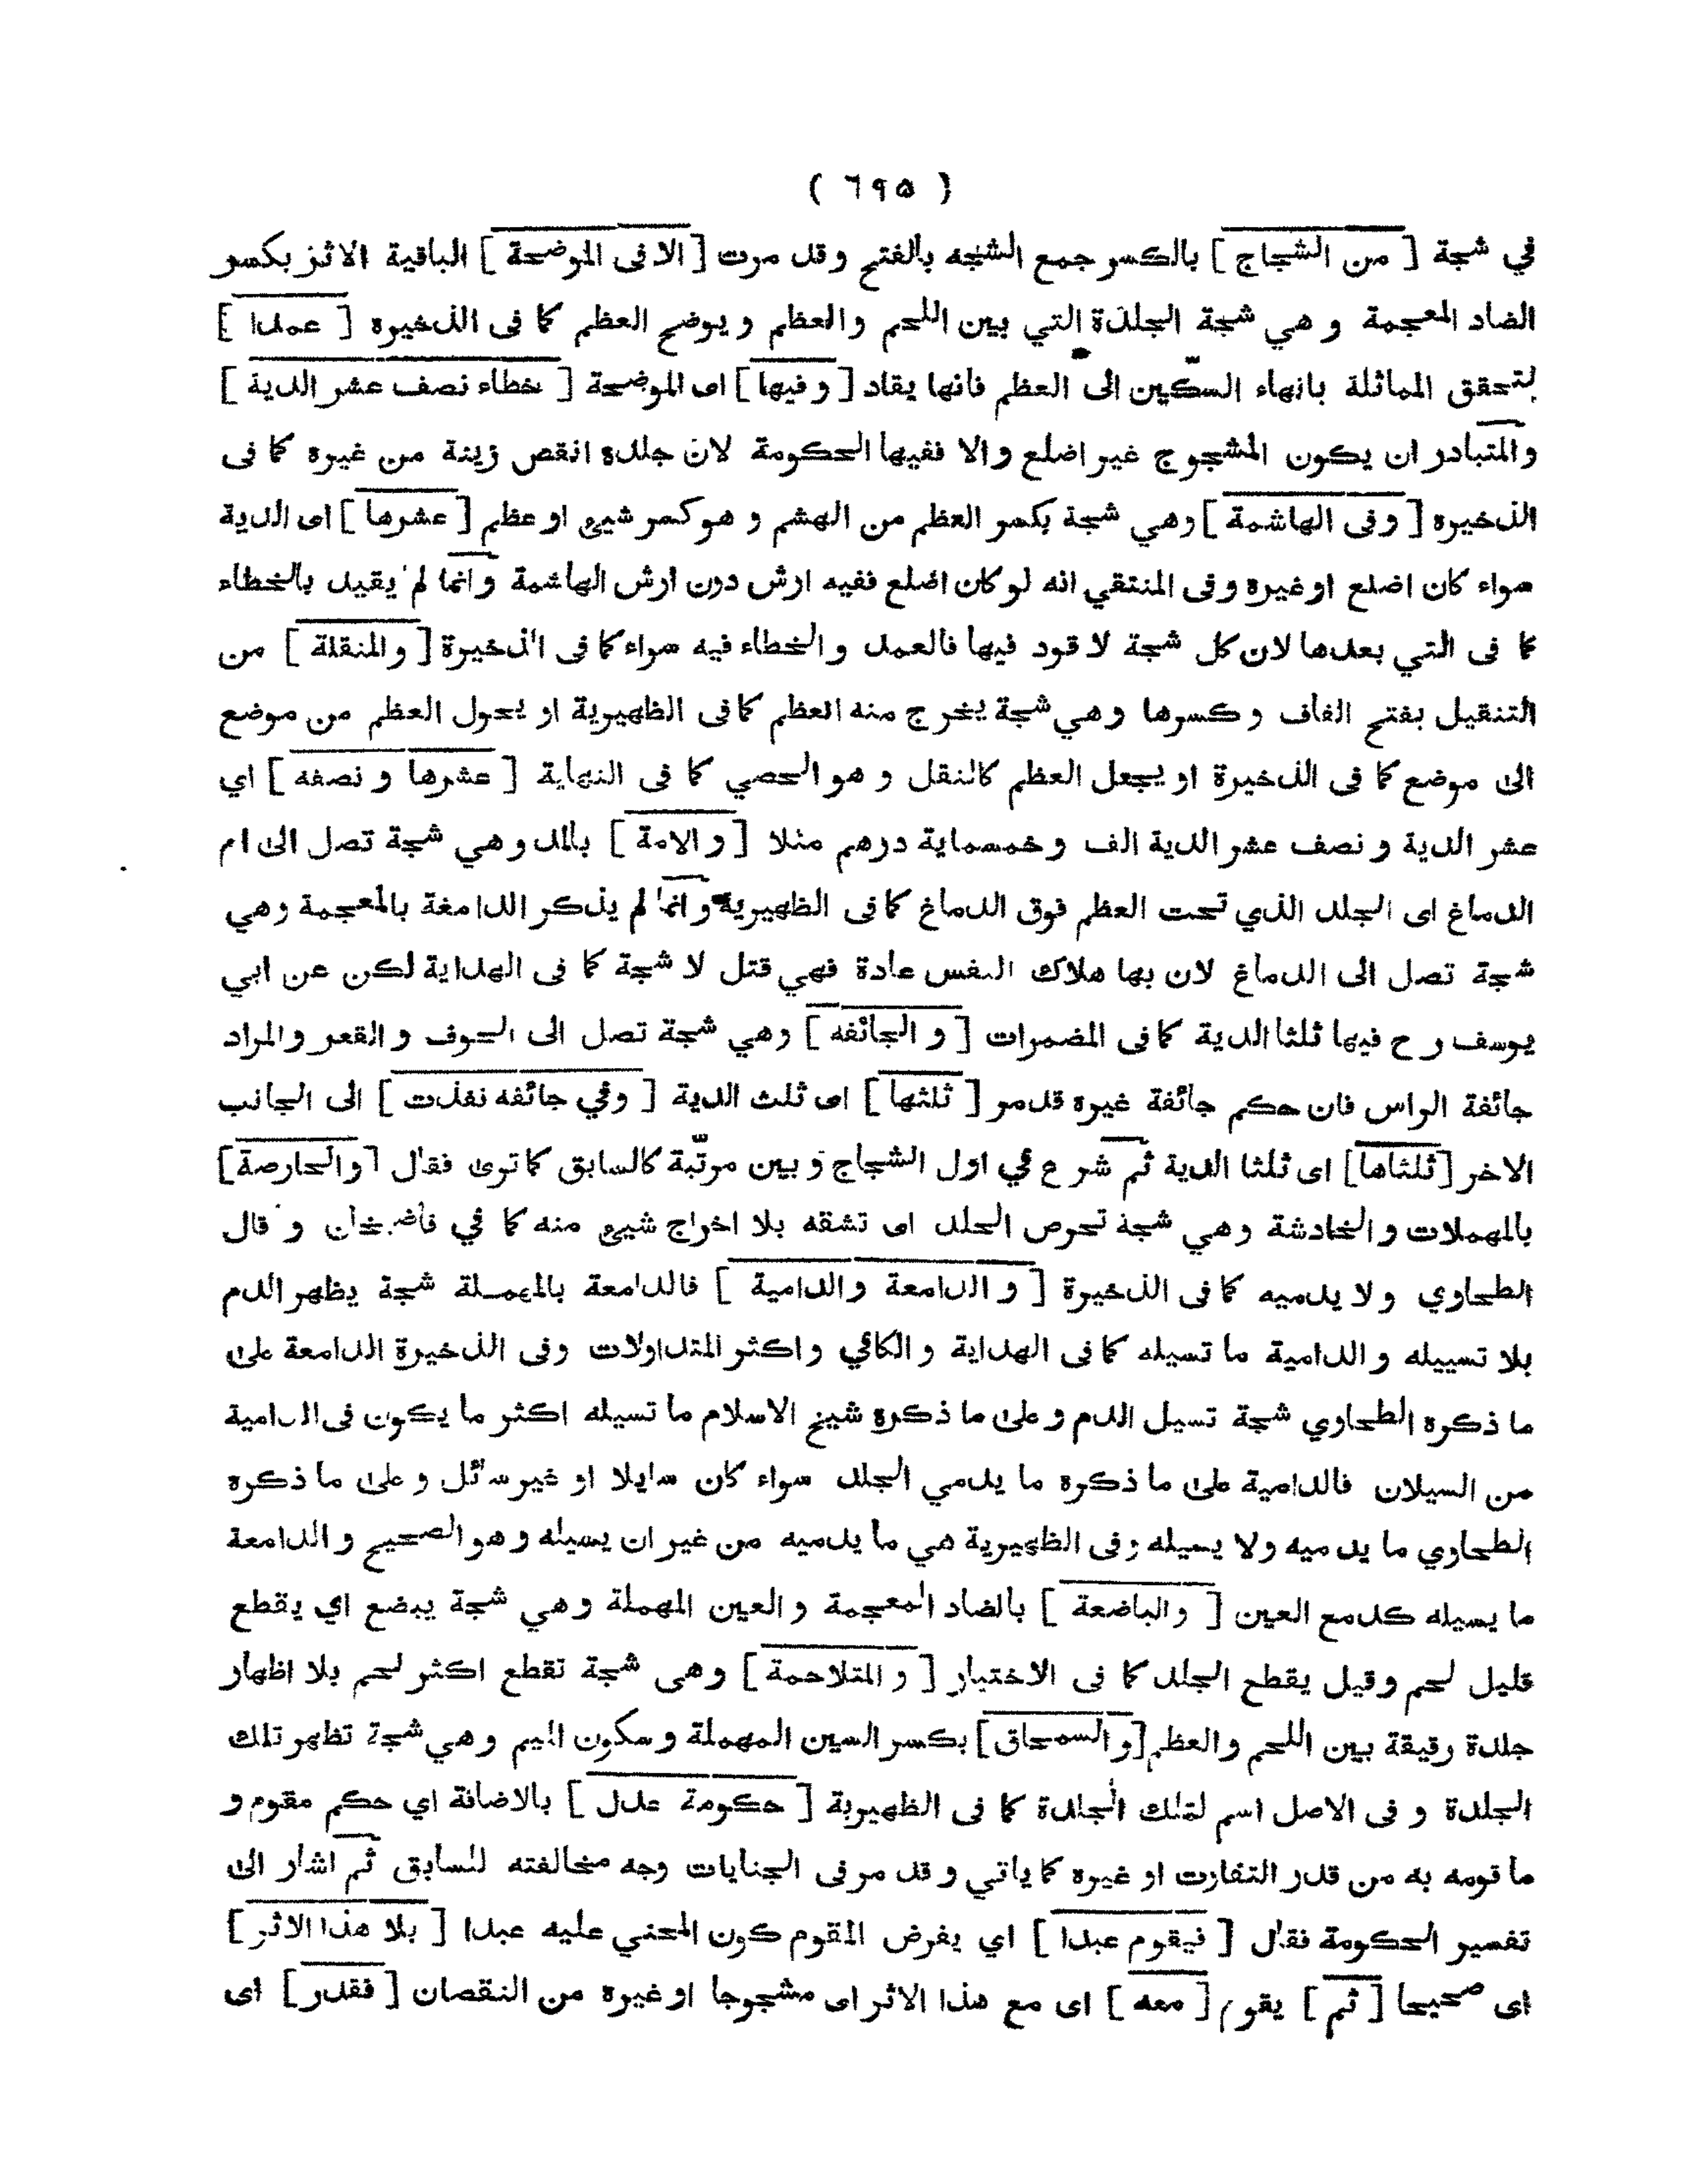 ( ٦٩٥ )
في شجة [ من الشجاج ] بالكسر جمع الشجه بالفتح وقد مرت [ الا فى الموضحة ] الباقية الاثر بكسر
الضاد المعجمة و هي شجة الجلدة التي بين اللحم والعظم و يوضح العظم كما فى الذخيره [ عمدا ]
لتحقق المماثلة بانهاء السكّين الى العظم فانها يقاد [ وفيها ] اى الموضحة [ خطاء نصف عشر الدية ]
والمتبادر ان يكون المشجوج غير اضلع والا ففيها الحكومة لان جلده انقص زينة من غيره كما فى
الذخيره [ وفى الهاشمة ] وهي شجة بكسر العظم من الهشم و هو كسر شيئ او عظم [ عشرها ] اى الدية
سواء كان اضلع او غيره وفى المنتقي انه لو كان اضلع ففيه ارش دون ارش الهاشمة وانما لم يقيد بالخطاء
كما فى التي بعدها لان كل شجة لا قود فيها فالعمد والخطاء فيه سواء كما فى الذخيرة [ والمنقلة ] من
التنقيل بفتح القاف وكسرها وهي شجة يخرج منه العظم كما فى الظهيرية او يحول العظم من موضع
الى موضع كما فى الذخيرة او يجعل العظم كالنقل و هو الحصي كما فى النهاية [ عشرها و نصفه ] اي
عشر الدية و نصف عشر الدية الف وخمسماية درهم مثلا [ والامة ] بالمد وهي شجة تصل الى ام
الدماغ اى الجلد الذي تحت العظم فوق الدماغ كما فى الظهيرية وانما لم يذكر الدامغة بالمعجمة وهي
شجة تصل الى الدماغ لان بها هلاك النفس عادة فهي قتل لا شجة كما فى الهداية لكن عن ابي
يوسف رح فيها ثلثا الدية كما فى المضمرات [ و الجائفه ] وهي شجة تصل الى الجوف والقعر والمراد
جائفة الراس فان حكم جائفة غيره قد مر [ ثلثها ] اى ثلث الدية [ وفي جائفه نفذت ] الى الجانب
الاخر [ ثلثاها ] اى ثلثا الدية ثم شرع في اول الشجاج و بين مرتّبة كالسابق كما ترى فقال [ والحارصة ]
بالمهملات والخادشة وهي شجة تحرص الجلد اى تشقه بلا اخراج شيئ منه كما في قاضيخان و قال
الطحاوي ولا يدميه كما فى الذخيرة [ و الدامعة والدامية ] فالدامعة بالمهملة شجة يظهر الدم
بلا تسييله والدامية ما تسيله كما فى الهداية والكافي واكثر المتداولات وفى الذخيرة الدامعة على
ما ذكره الطحاوي شجة تسيل الدم وعلى ما ذكره شيخ الاسلام ما تسيله اكثر ما يكون فى الدامية
من السيلان فالدامية على ما ذكره ما يدمي الجلد سواء كان سايلا او غير سائل وعلى ما ذكره
الطحاوي ما يدميه ولا يسيله وفى الظهيرية هي ما يدميه من غير ان يسيله وهو الصحيح والدامعة
ما يسيله كدمع العين [ والباضعة ] بالضاد المعجمة والعين المهملة وهي شجة يبضع اي يقطع
قليل لحم وقيل يقطع الجلد كما فى الاختيار [ و المتلاحمة ] وهى شجة تقطع اكثر لحم بلا اظهار
جلدة رقيقة بين اللحم والعظم [ والسمحاق ] بكسر السين المهملة وسكون الميم وهي شجة تظهر تلك
الجلدة و فى الاصل اسم لتلك الجلدة كما فى الظهيرية [ حكومة عدل ] بالاضافة اي حكم مقوم و
ما قومه به من قدر التفاوت او غيره كما ياتي وقد مر فى الجنايات وجه مخالفته للسابق ثم اشار الى
تفسير الحكومة فقال [ فيقوم عبدا ] اي يفرض المقوم كون المجني عليه عبدا [ بلا هذا الاثر ]
اى صحيحا [ ثم ] يقوم [ معه ] اى مع هذا الاثر اى مشجوجا او غيره من النقصان [ فقدر ] اى